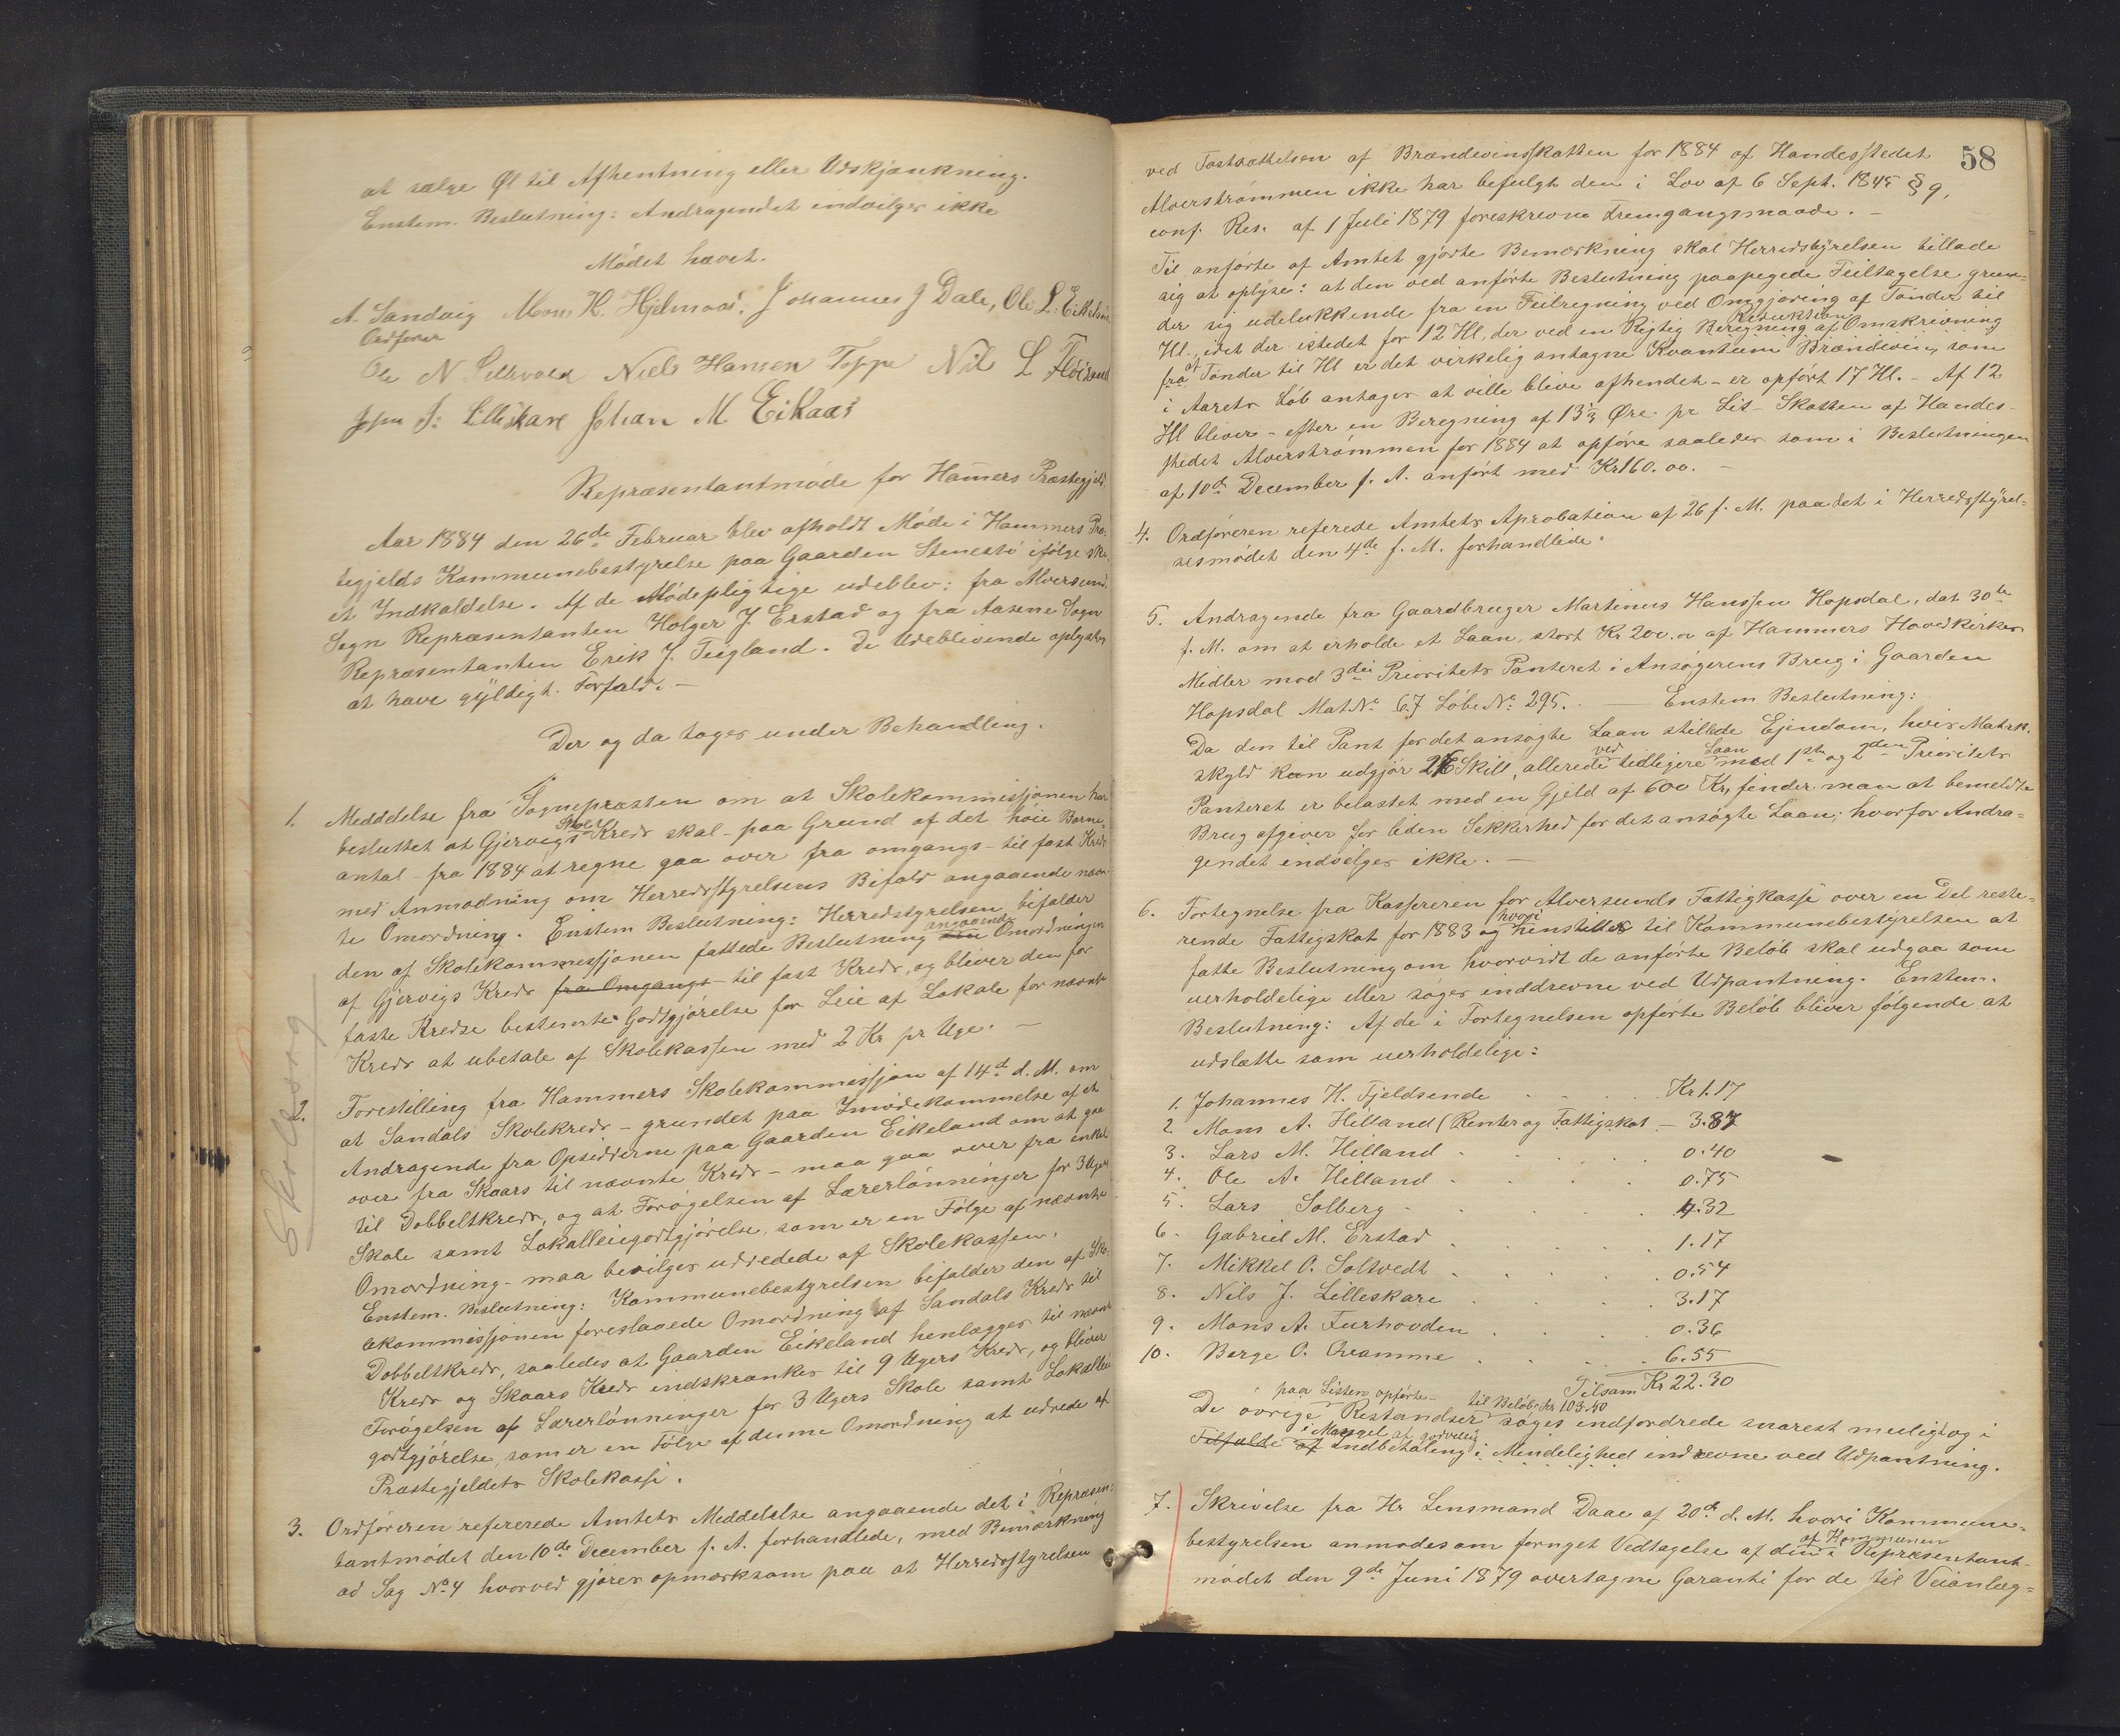 at sælge Øl til Afhentning eller Udskjænkning.
Enstem. Beslutning: Andragendet indvilges ikke
Mødet hævet.
A. Sandvig Mons H. Hjelmaas. Johannes J Dale, Ole L. Eikeland
Ordfører
Ole N Selhvold Niels Hansen Toppe Nils L Fløisand
J. Lilleskare Johan M Eikaas
Repræsentantmøde for Hamers Præstegjeld
Aar 1884 den 26de Februar blev afholdt Møde i Hammers Præ-
tegjelds Kommunebestyrelse paa Gaarden Stenestø ifølge ske-
et Indkaldelse. Af de Mødepligtige udeblev: fra Alversund
Sogn Repræsentanten Holger J. Erstad og fra Aasene Sogn
Repræsentanten Erik J. Teigland. De Udeblivende oplystes
at have gyldigt Forfald. –
Der og da toges under Behandling.
1. Meddelelse fra Sognepræsten om at Skolekommissjonen har
besluttet at Gjervigs Skole Kreds skal – paa Grund af det høie Børne-
antal – fra 1884 at regne gaa over fra omgangs – til fast Kreds
med Anmodning om Herredsstyrelsens Bifald angaaende nævn-
te Omordning. Enstem Beslutning: Herredstyrelsen bifalder
den af Skolekommissjonen fattede Beslutning angaaende Omordningen
af Gjervigs Kreds fra Omgangs – til fast Kreds, og bliver den for
faste Kredse bestemte Godtgjørelse for Leie af Lokale for nævnte
Kreds at ubetale af Skolekassen med 2 Kr pr Uge. –
Skolesørg
2. Forestilling fra Hammers Skolekommissjon af 14de d. M. om
at Sandals Skolekreds – grundet paa Imødekommelse af et
Andragende fra Opsidderne paa Gaarden Eikeland om at gaa
over fra Skaars til nævnte Kreds – maa gaa over fra enkel
til Dobbeltkreds, og at Forøgelsen af Lærerlønninger for 3 Ugers
Skole samt Lokalleiegodtgjørelse, som er en Følge af nævnte
Omordning – maa bevilges udredede af Skolekassen.
Enstem. Beslutning: Kommunebestyrelsen bifalder den af Sko-
lekommissjonen foreslaaede Omordning af Sandals Kreds til
Dobbeltkreds, saaledes at Gaarden Eikeland henlægges til nævnte
Kreds og Skaars Kreds indskrænkes til 9 Ugers Kreds, og bliver
Forøgelsen af Lærerlønninger for 3 Ugers Skole samt Lokalleie
godtgjørelse, som er en Følge af denne Omordning at udrede af
Præstegjeldets Skolekasse.
3. Ordføreren refererede Amtets Meddelelse angaaende det i Repræsen-
tantmødet den 10de December f. A. forhandlede, med Bemærkning
ad Sag No. 4 hvorved gjøres opmærksom paa at Herredsstyrelsen
58
ved Fastsættelsen af Brændevinsskatten for 1884 af Handesstedet
Alverstrømmen ikke har befulgt den i Lov af 6 Sept. 1845 § 9,
conf. Res. af 1 Juli 1879 foreskrevne Fremgangsmaade. –
Til anførte af Amtet gjørte Bemærkning skal Herredsstyrelsen tillade
sig at oplyse: at den ved anførte Beslutning paapegede Feiltagelse grun-
der sig udelukkende fra en Feilregning ved Omgjøring af Tønder til
Hl., idet der istedet for 12 Hl, der ved en Rigtig Beregning Reduktion af Omskrivning
fra at Tønder til Hl er det virkelig antagne Kvantum Brændevin, som
i Aarets Løb antages at ville blive afhendet – er opført 17 Hl. – Af 12
Hl bliver – efter en Beregning af 13⅓ Øre pr Lit – Skatten af Handes-
stedet Alverstrømmen for 1884 at opføre saaledes som i Beslutningen
af 10de December f. A. anført med Kr 160.00. –
4. Ordføreren referede Amtets Aprobation af 26 f. M. paa det i Herredsstyrel-
sesmødet den 4de f. M. forhandlede.
5. Andragende fra Gaardbruger Martinus Hanssen Hopsdal, dat 30te
f. M. om at erholde et Laan, stort Kr 200.00 af Hammers Hovedkirkes
Midler mod 3die Prioritets Panteret i Ansøgerens Brug i Gaarden
Hopsdal Mat No. 67 Løbe No. 295. – Enstem Beslutning:
Da den til Pant for det ansøgte Laan stillede Ejendom, hvis Matrk.
skyld kun udgjør 26 Skill, allerede ved tidligere Laan med 1ste og 2den Prioritets
Panteret er belastet med en Gjeld af 600 Kr, finder man at bemeldte
Brug afgiver for liden Sikkerhed for det ansøgte Laan; hvorfor Andra-
gendet indvilges ikke. –
6. Fortegnelse fra Kassereren for Alversunds Fattigkasse over en Del reste-
rende Fattigskat for 1883 og hvori henstilles til Kommunebestyrelsen at
fatte Beslutning om hvorvidt de anførte Beløb skal udgaa som
uerholdelige eller søges inddrevne ved Udpantning. Enstem.
Beslutning: Af de i Fortegnelsen opførte Beløb bliver følgende at
udslætte som uerholdelige:
1. Johannes H. Fjeldsende Kr 1.17
2 Mons A. Hilland (Renter og Fattigskat – 3.87
3. Lars M. Hilland 0.40
4. Ole A. Hilland 0.75
5. Lars Solberg 4.32
6. Gabriel M. Erstad 1.17
7. Mikkel O. Soltvedt 0.54
8. Nils J. Lilleskare 3.17
9. Mons A. Furhovden 0.36
10. Børge O. Qvamme 6.55
Tilsam Kr 22.30
De øvrige paa Listen opførte Restandser til Beløb Kr 103.40 søges indfordrede snarest muligt og i
Tilfælde af i Mangel af godvillig Indbetaling i Mindelighed inddrevne ved Udpantning.
7. Skrivelse fra Hr Lensmand Daae af 20de d. M. hvori Kommune-
bestyrelsen anmodes om fornyet Vedtagelse af den af Kommunen i Repræsentant-
mødet den 9de Juni 1879 overtagne Garanti for de til Veianlæg-